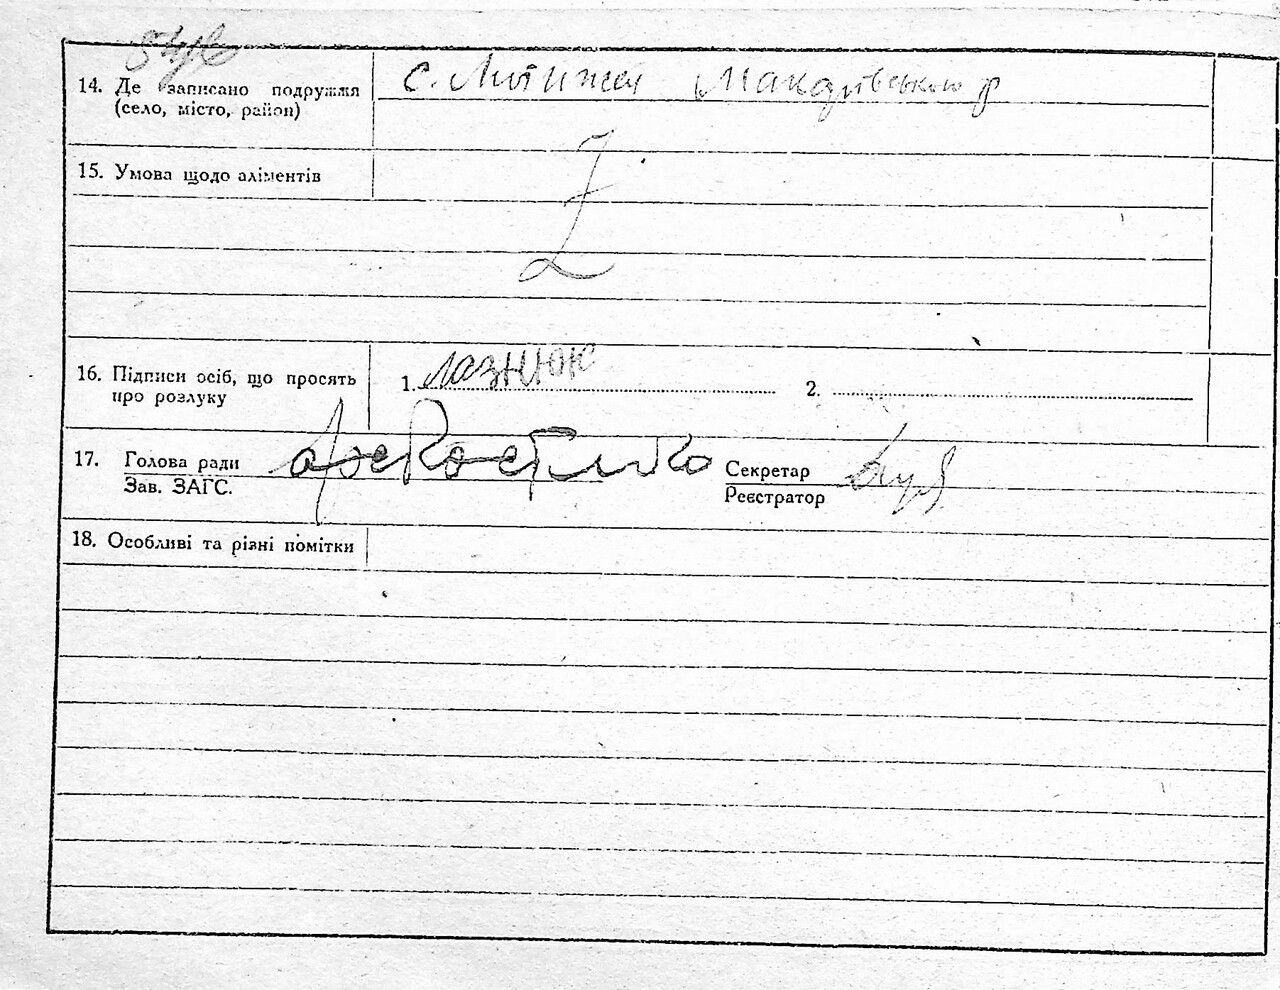 14. Де записано подружжя
(село, місто, район)
с. Мотижин Макарівського р
15. Умова щодо аліментів
Z
16. Підписи осіб, що просять
про розлуку
1. Лазнюк
2.
17. Голова ради
Зав. ЗАГС.
Секретар
Реєстратор
18. Особливі та різні помітки